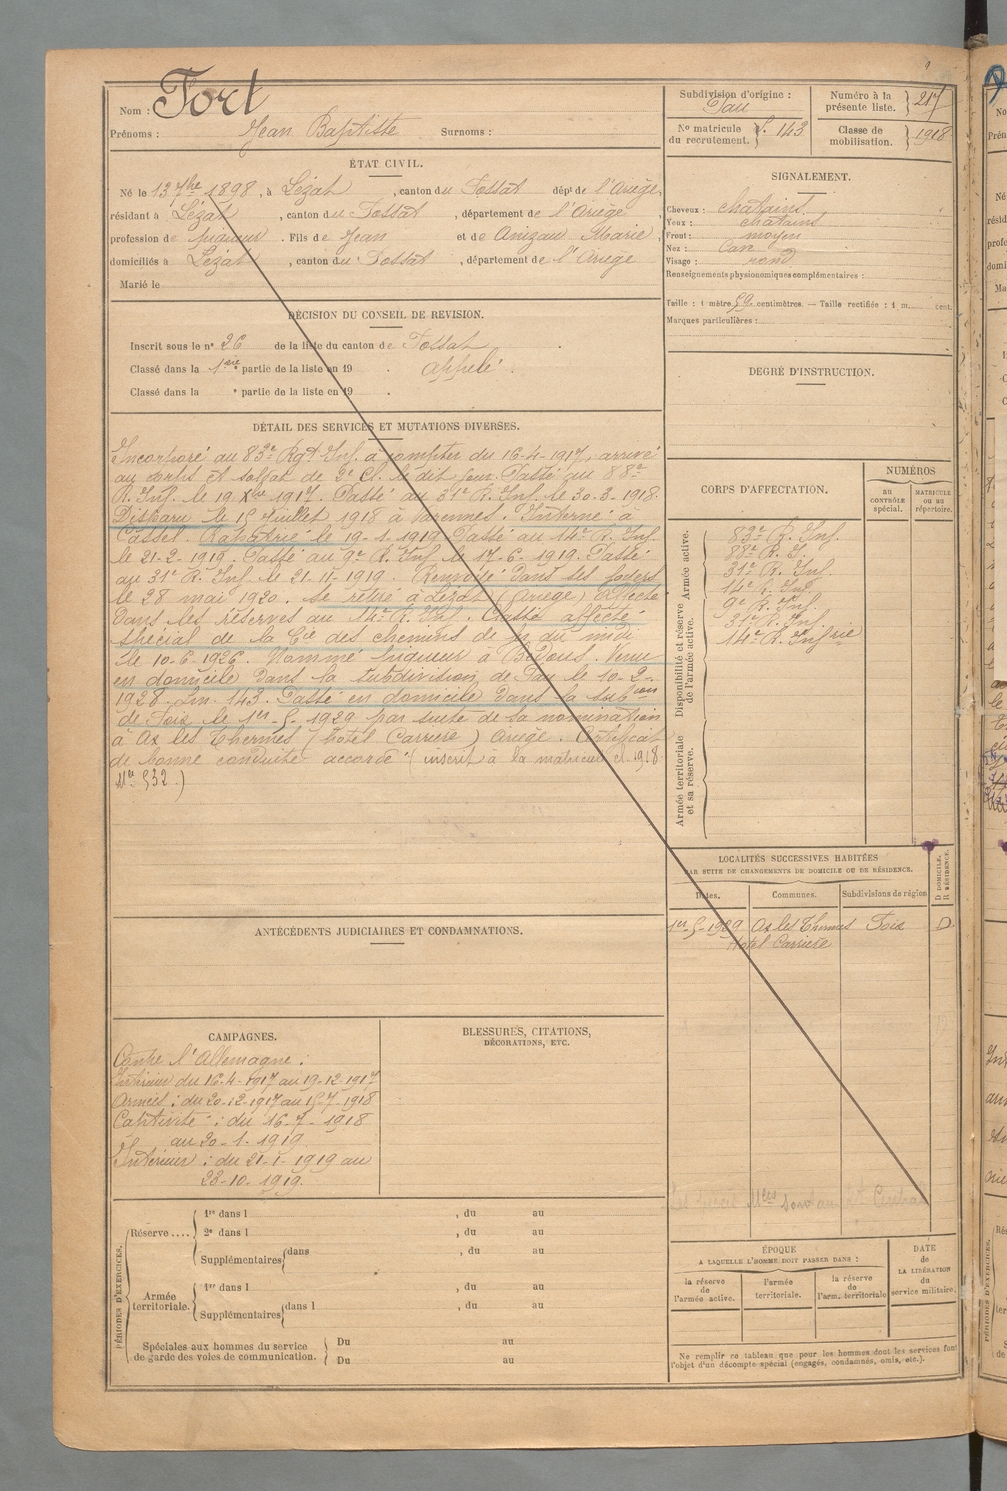 Nom : Fort
Prénoms : Jean Baptiste Surnoms :
ÉTAT CIVIL.
Né le 13 7bre 1898, à Lézat, canton du Fossat dépt de l'Ariège,
résidant à Lézat, canton du Fossat, département de l'Ariège
profession de piqueur. Fils de Jean et de Anizau Marie,
domiciliés à Lézat, canton du Fossat, département de l'Ariège
Marié le
DÉCISION DU CONSEIL DE REVISION.
Inscrit sous le n° 26 de la liste du canton de Fossat.
Classé dans la 1ère partie de la liste en 19 . appelé.
Classé dans la e partie de la liste en 19 .
DÉTAIL DES SERVICES ET MUTATIONS DIVERSES.
Incorporé au 83e Rgt Inf. à compter du 16-4-1917, arrivé
au corps et soldat de 2e Cl. le dit jour. Passé au 88e
R. Inf. le 19 Xbre 1917. Passé au 31e R. Inf. le 30-3-1918.
Disparu le 15 Juillet 1918 à Varennes. Interné à
Cassel. Rapatrié le 19-1-1919 Passé au 14e R. Inf.
le 21-2-1919. Passé au 9e R. Inf. le 17-6-1919. Passé
au 31e R. Inf. le 21-11-1919. Renvoyé dans ses foyers
le 28 mai 1920. Se retire à Lézat (Ariège) Affecté
dans les réserves au 14e R. Inf. Classé affecté
spécial de la Cie des chemins de fer du midi
le 10-6-1926. Nommé piqueur à Bedous. Venu
en domicile dans la subdivision de Pau le 10-2-
1928. Lm. 143. Passé en domicile dans la subon
de Foix le 1er-5-1929 par suite de sa nomination
à Ax les Thermes (hôtel Carrière) Ariège. Certificat
de bonne conduite accordé (inscrit à la matricule cl. 1918
Mle 532.)
ANTÉCÉDENTS JUDICIAIRES ET CONDAMNATIONS.
CAMPAGNES.
Contre l'Allemagne :
Intérieur du 16-4-1917 au 19-12-1917
Armées : du 20-12-1917 au 15-7-1918
Captivité : du 16-7-1918
au 20-1-1919.
Intérieur : du 21-1-1919 au
23-10-1919.
BLESSURES, CITATIONS,
DÉCORATIONS, ETC.
PÉRIODES D'EXERCICES.
Réserve ....
1re dans l , du au
2e dans l , du au
Supplémentaires dans , du au
Armée territoriale.
1re dans l , du au
Supplémentaires dans l , du au
Spéciales aux hommes du service
de garde des voies de communication.
Du au
Du au
Subdivision d'origine :
Pau
Numéro à la
présente liste. 217
N° matricule
du recrutement. 143
Classe de
mobilisation. 1918
SIGNALEMENT.
Cheveux : chatains
Yeux : chatains
Front : moyen
Nez : Cave
Visage : rond
Renseignements physionomiques complémentaires :
Taille : 1 mètre 59 centimètres. — Taille rectifiée : 1 m. cent.
Marques particulières :
DEGRÉ D'INSTRUCTION.
CORPS D'AFFECTATION.
NUMÉROS
AU CONTRÔLE spécial.
MATRICULE OU AU répertoire.
Disponibilité et réserve de l'armée active. Armée active.
83e R. Inf.
88e R. I.
31e R. Inf.
14e R. Inf.
9e R. Inf.
31e R. Inf.
14e R. Infrie
Armée territoriale et sa réserve.
LOCALITÉS SUCCESSIVES HABITÉES
PAR SUITE DE CHANGEMENTS DE DOMICILE OU DE RÉSIDENCE.
Dates. Communes. Subdivisions de région
D. DOMICILE. R. RÉSIDENCE.
1er-5-1929 Ax les Thermes Foix D
Hotel Carrière
ÉPOQUE
A LAQUELLE L'HOMME DOIT PASSER DANS :
la réserve de l'armée active.
l'armée territoriale.
la réserve de l'arm. territoriale
DATE de LA LIBÉRATION du service militaire.
Ne remplir ce tableau que pour les hommes dont les services font
l'objet d'un décompte spécial (engagés, condamnés, omis, etc.).